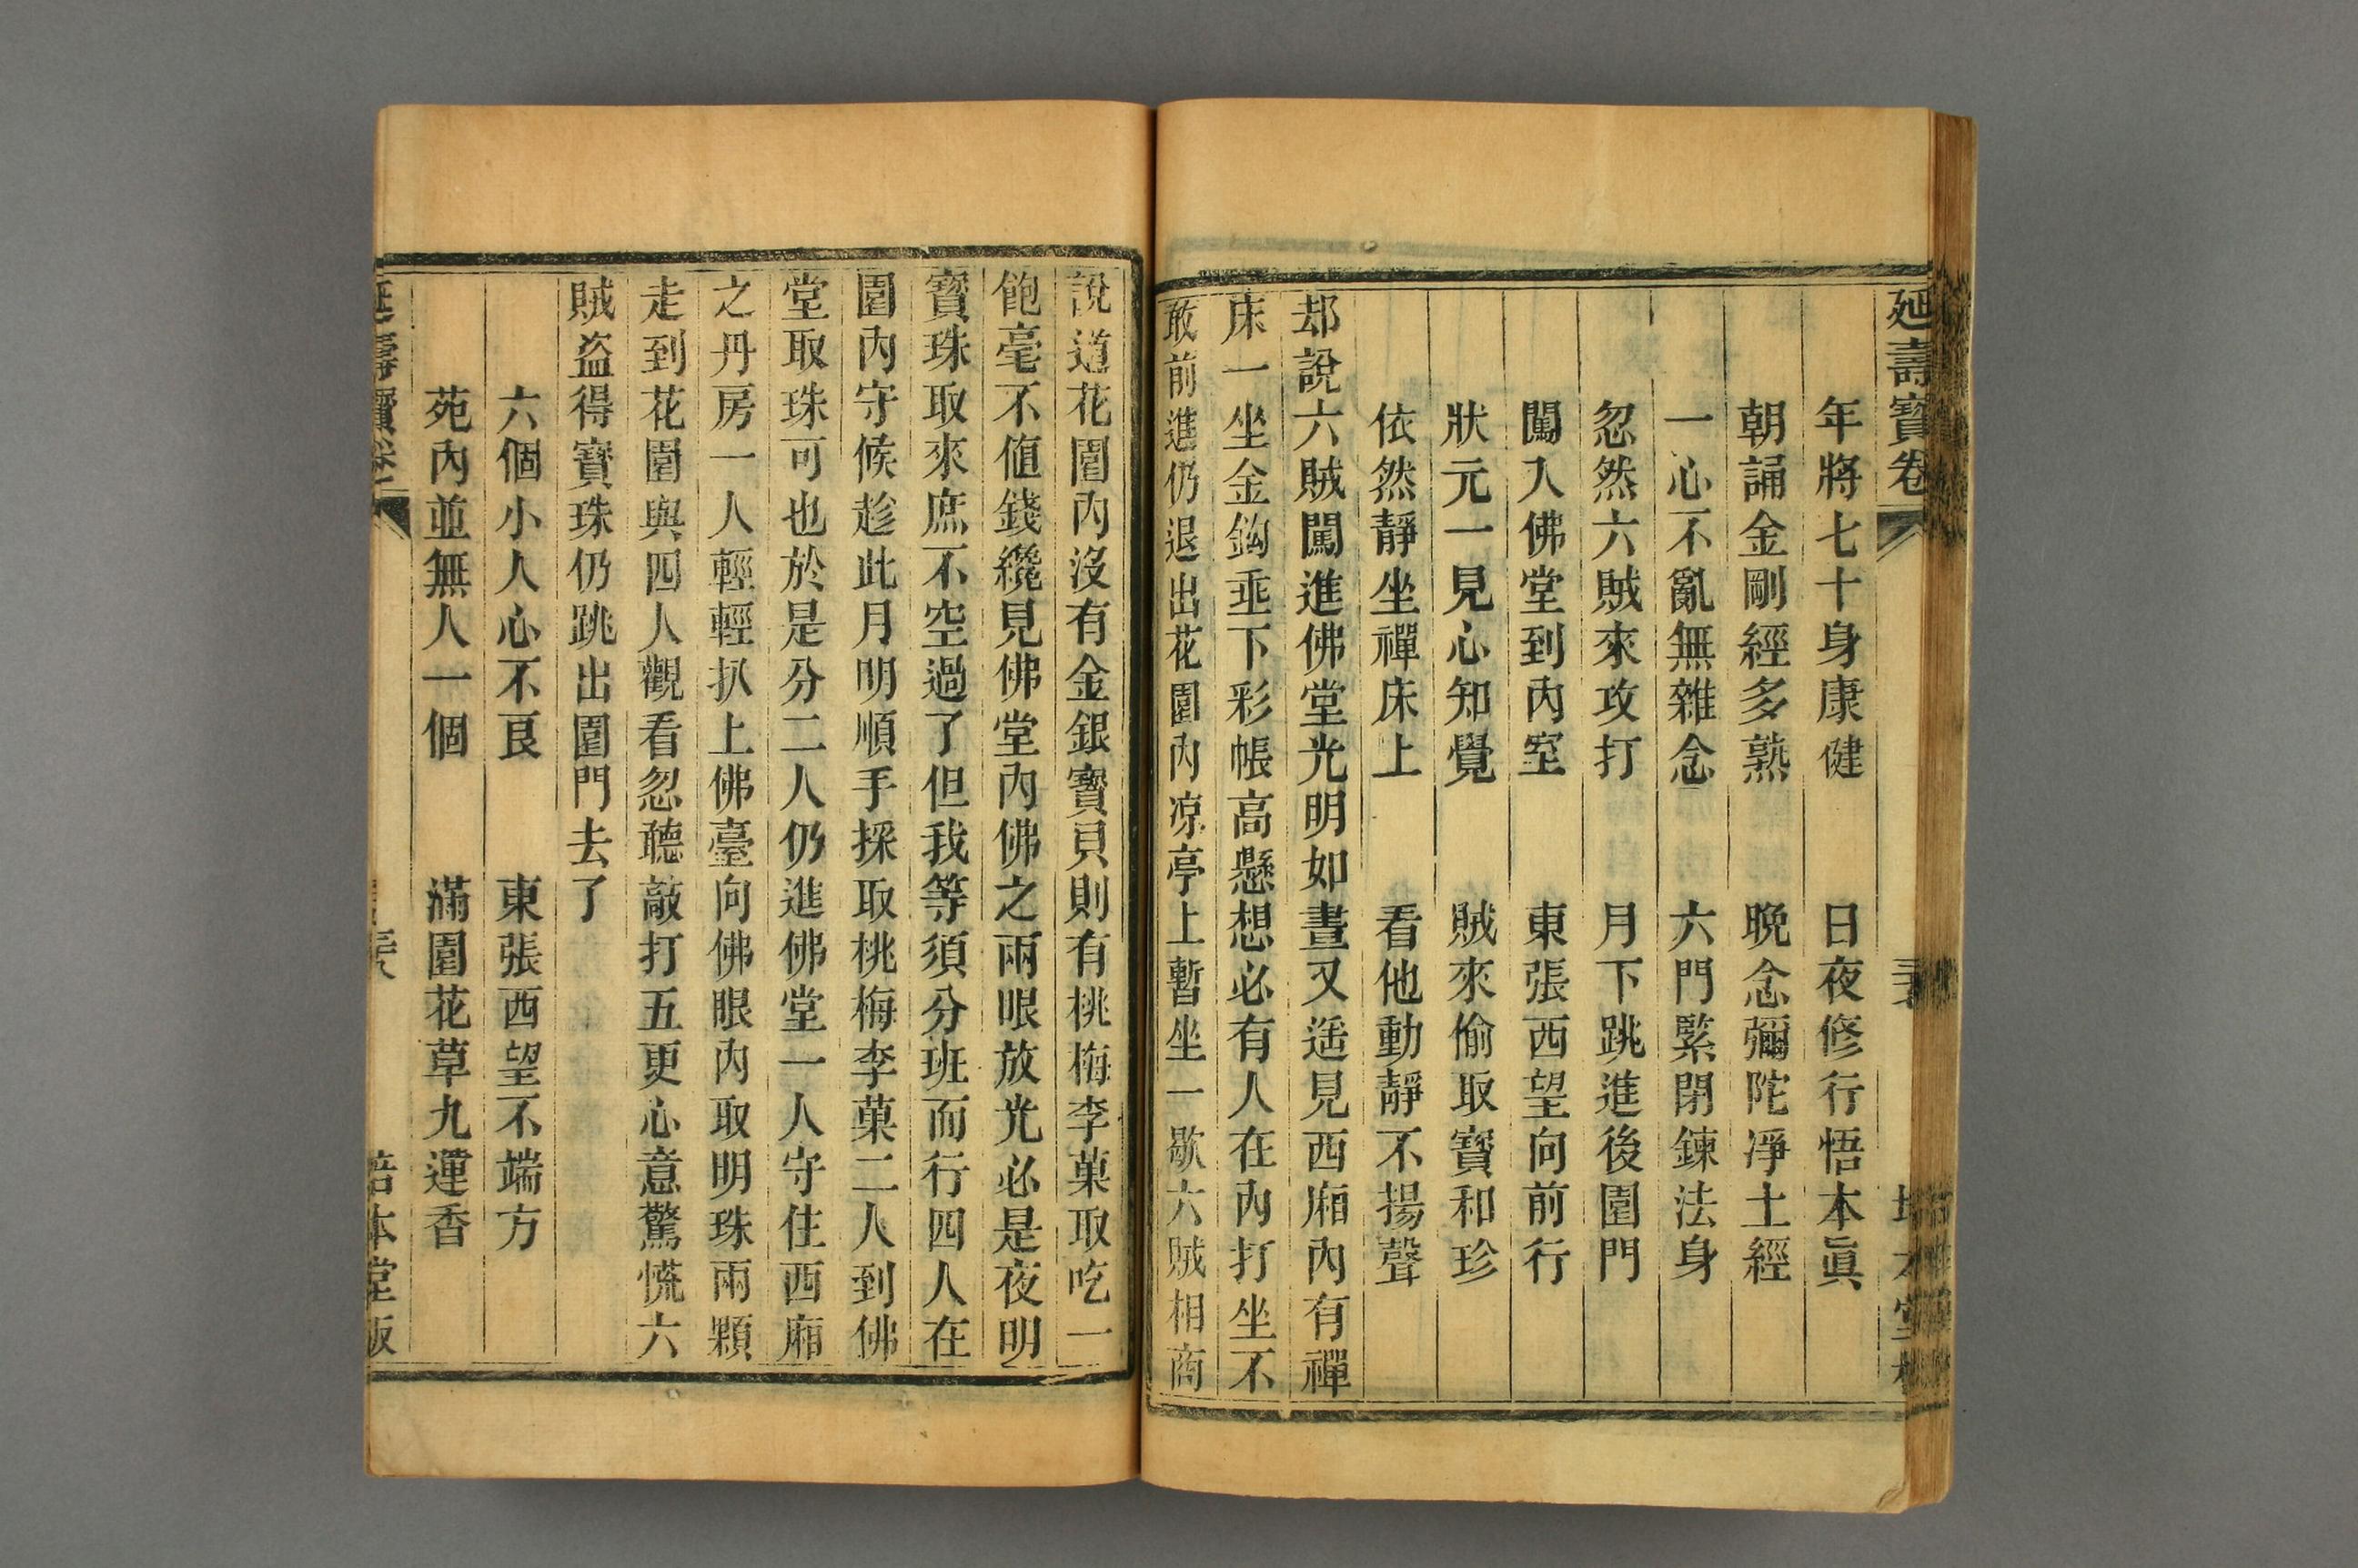 延壽寶卷
年將七十身康健 日夜修行悟本眞
朝誦金剛經多熟 晚念彌陀凈土經
一心不亂無雜念 六門緊閉鍊法身
忽然六賊來攻打 月下跳進後園門
闖入佛堂到內室 東張西望向前行
狀元一見心知覺 賊來偷取寶和珍
依然靜坐禪床上 看他動靜不揚聲
却說六賊闖進佛堂光明如晝又遙見西廂內有禪
床一坐金鈎垂下彩帳高懸想必有人在內打坐不
敢前進仍退出花園內凉亭上暫坐一歇六賊相商
說道花園內沒有金銀寶貝則有桃梅李菓取吃一
飽毫不値錢纔見佛堂內佛之兩眼放光必是夜明
寶珠取來庶不空過了但我等須分班而行四人在
園內守候趁此月明順手採取桃梅李菓二人到佛
堂取珠可也於是分二人仍進佛堂一人守住西廂
之丹房一人輕輕扒上佛臺向佛眼內取明珠兩顆
走到花園與四人觀看忽聽敲打五更心意驚慌六
賊盗得寶珠仍跳出園門去了
六個小人心不良 東張西望不端方
苑內並無人一個 滿園花草九運香
延壽寶卷 培本堂版